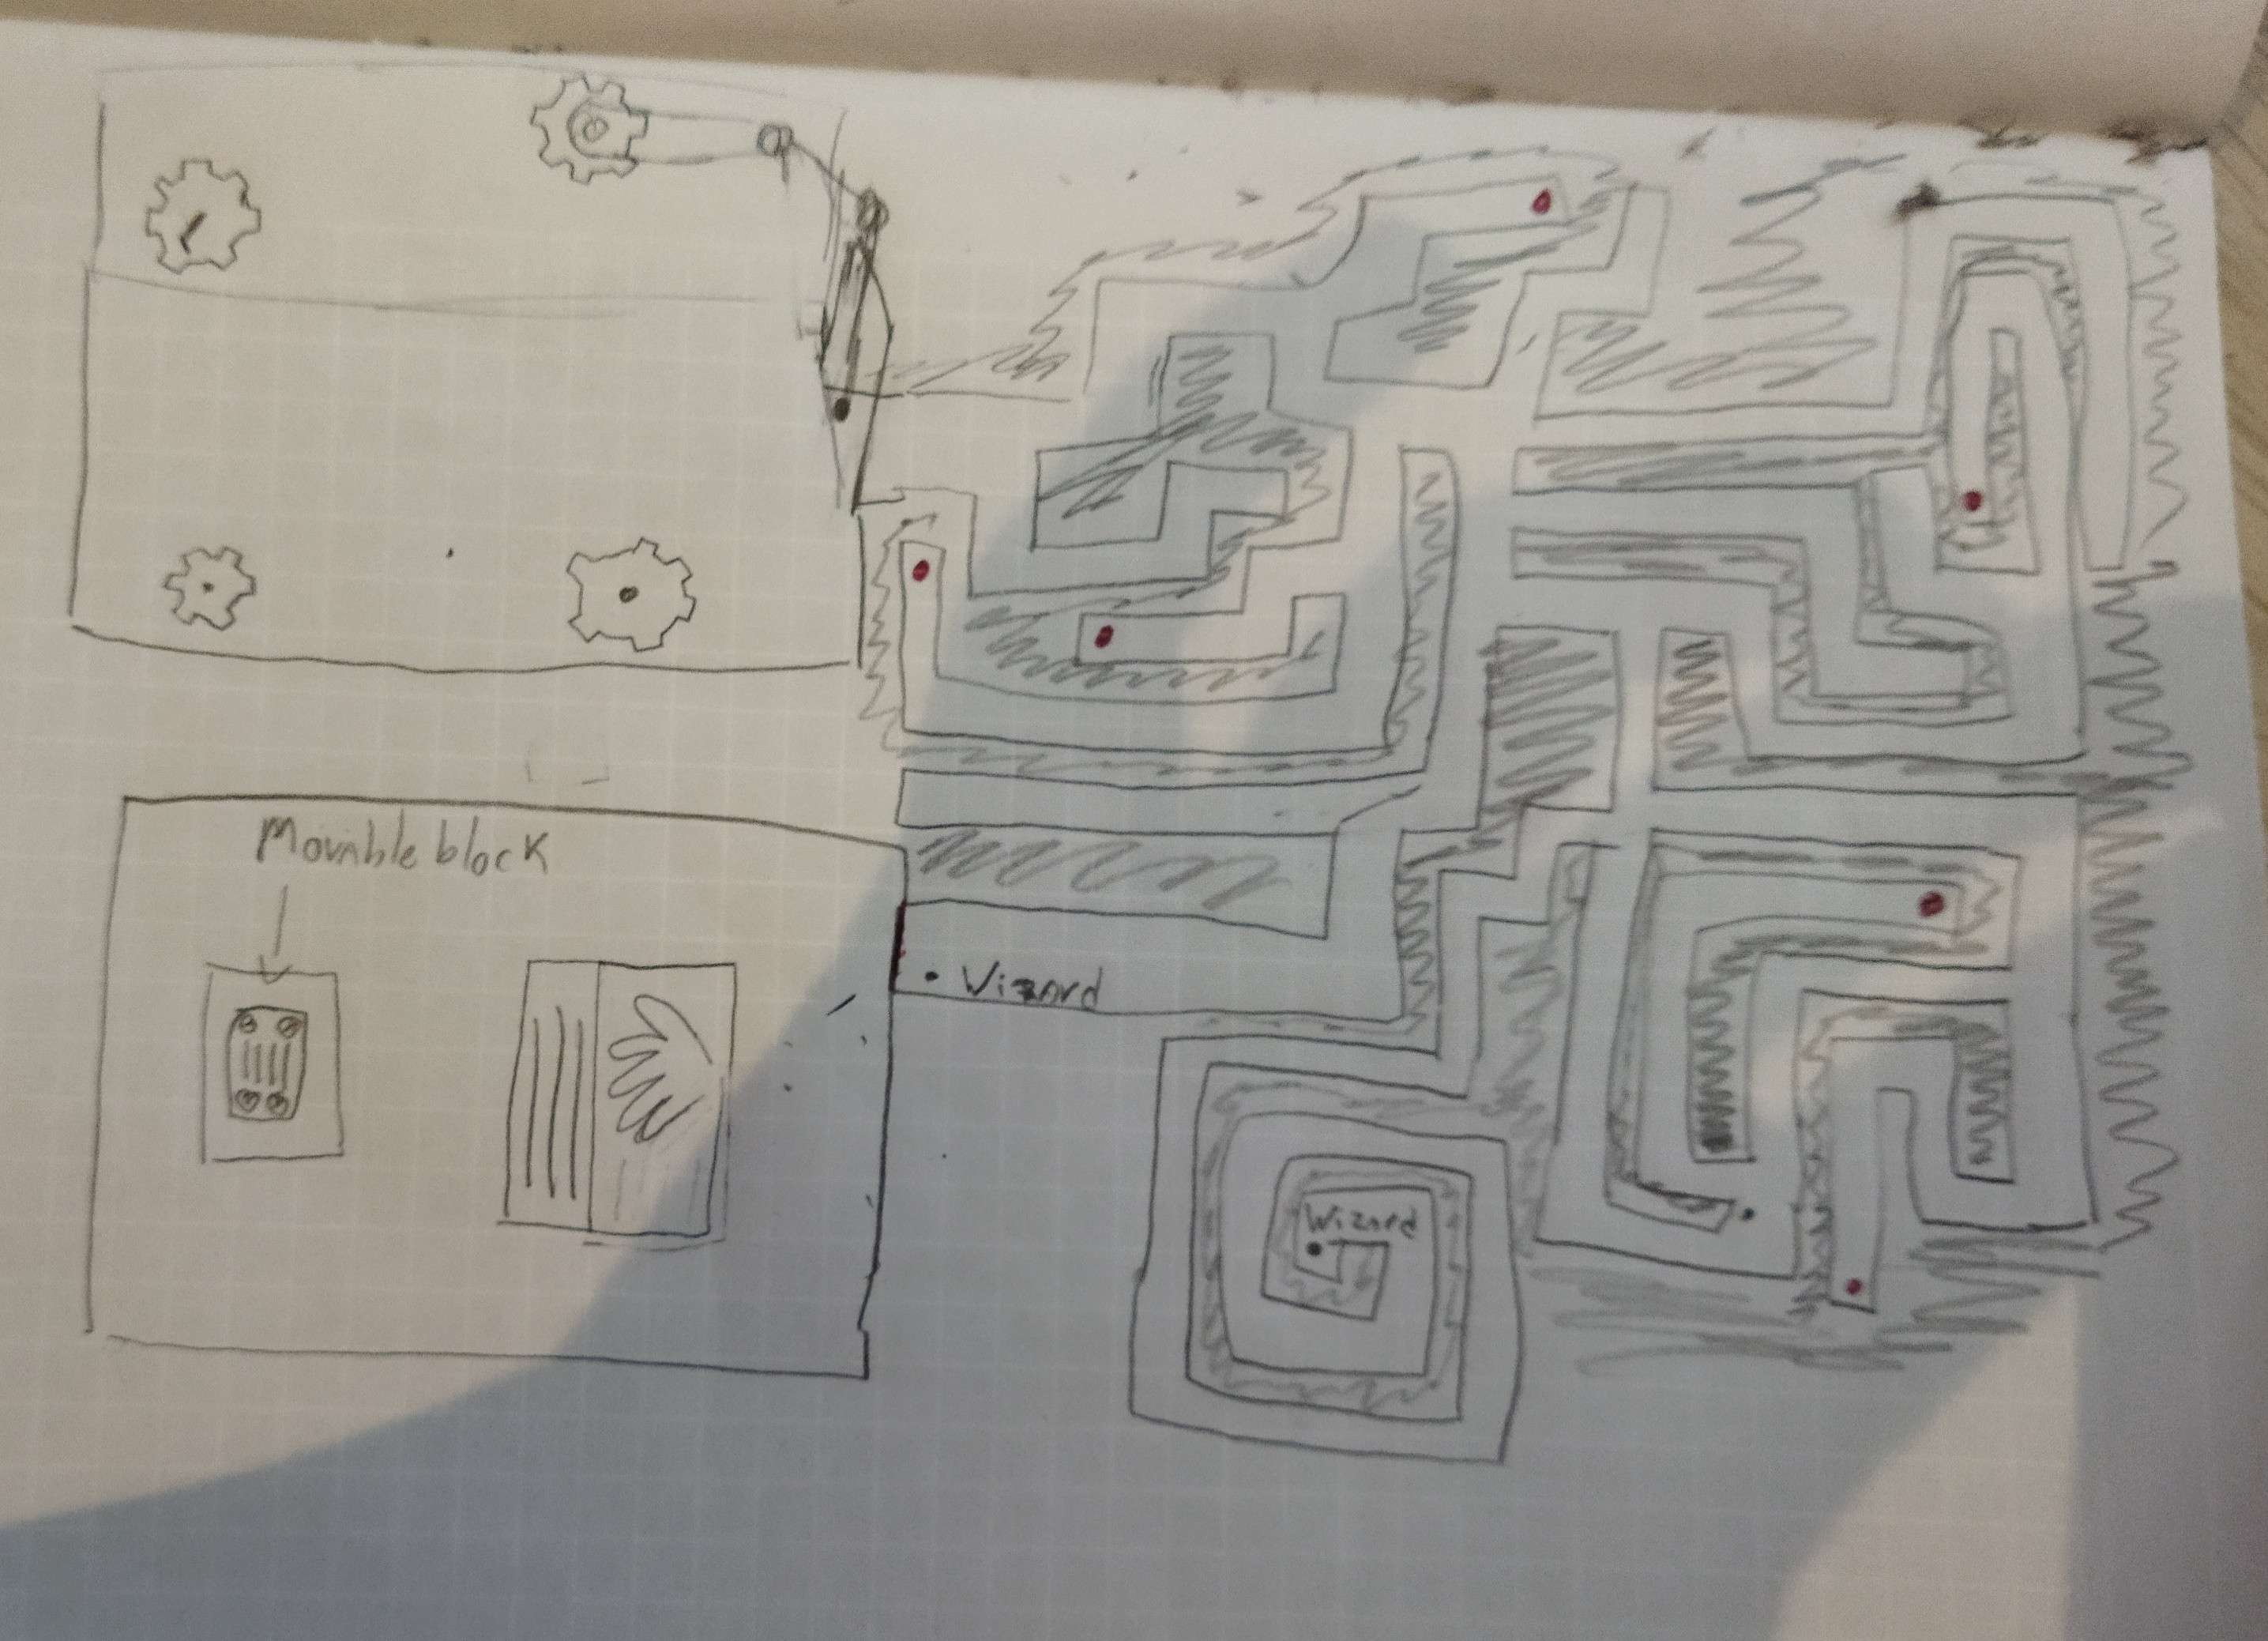 Movable block
Wizard
Wizard